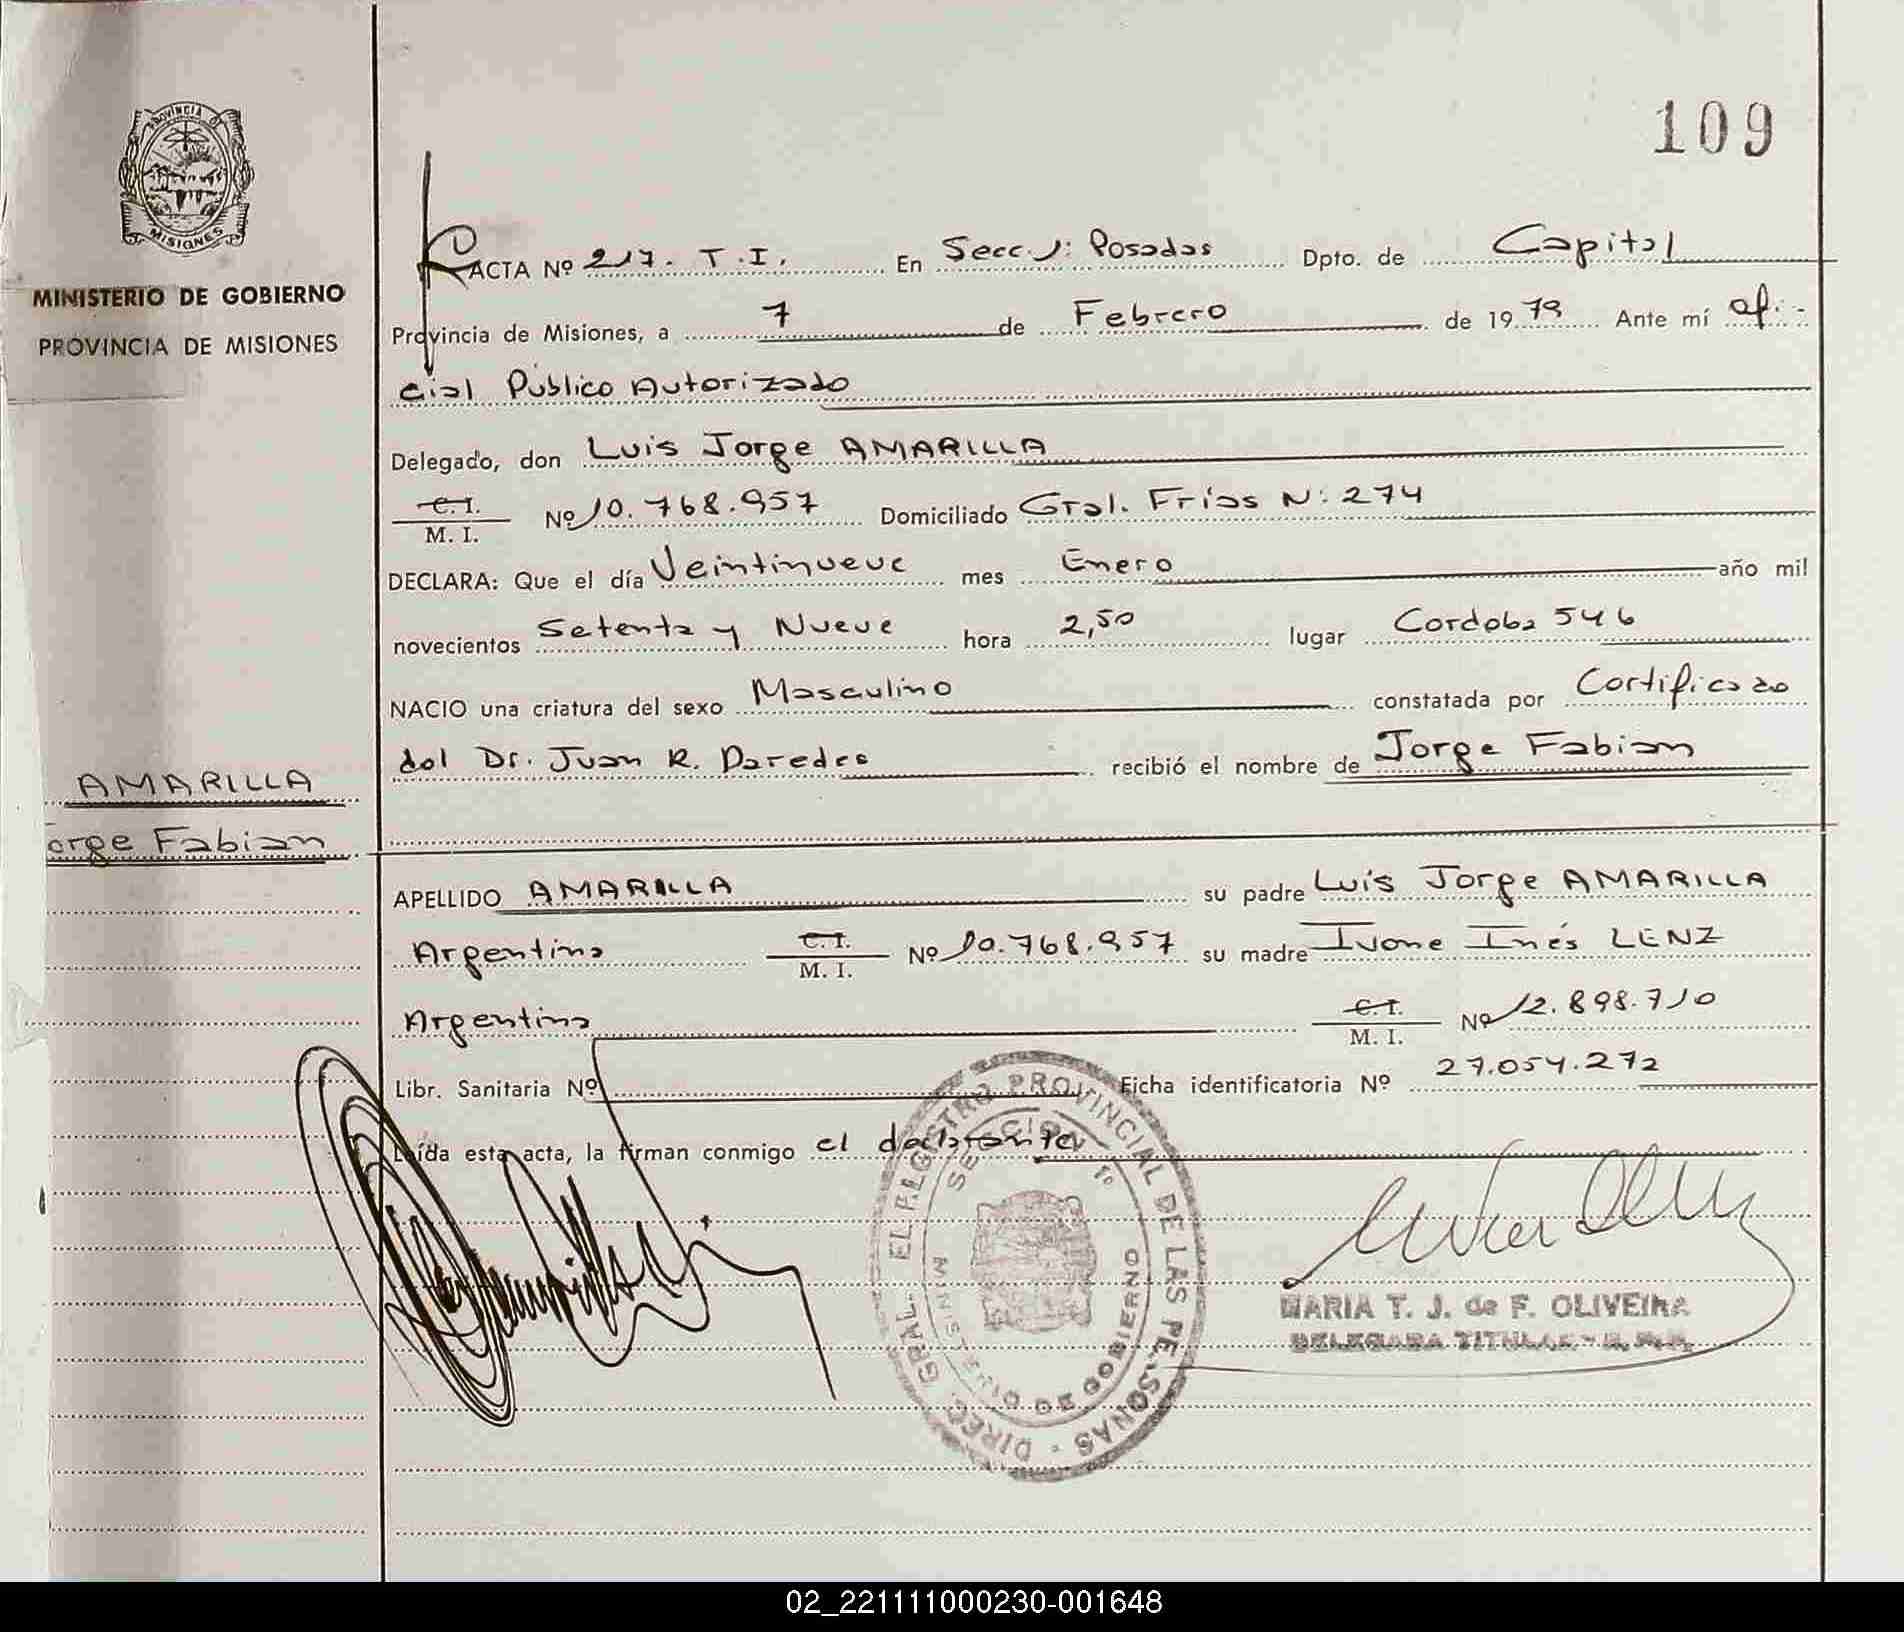 109
PROVINCIA D
MISIONES
MINISTERIO DE GOBIERNO
PROVINCIA DE MISIONES
ACTA Nº 217. T.I. En Secc. 1: Posadas Dpto. de Capital
Provincia de Misiones, a 7 de Febrero de 1979 Ante mí ofi-
cial Público Autorizado
Delegado, don Luis Jorge AMARILLA
C.I. / M. I. Nº 10.768.957 Domiciliado Gral. Frías N: 274
DECLARA: Que el día Veintinueve mes Enero año mil
novecientos Setenta y Nueve hora 2,50 lugar Cordoba 546
NACIO una criatura del sexo Masculino constatada por Certificado
del Dr. Juan R. Paredes recibió el nombre de Jorge Fabian
AMARILLA
orge Fabian
APELLIDO AMARILLA su padre Luis Jorge AMARILLA
Argentino C.I. / M. I. Nº 10.768.957 su madre Ivone Inés LENZ
Argentina C.I. / M. I. Nº 12.898.710
Libr. Sanitaria Nº Ficha identificatoria Nº 27.054.272
Leída esta acta, la firman conmigo el declarante
DIREC. GRAL. EL REGISTRO PROVINCIAL DE LAS PERSONAS
SECCION 1º
MINISTERIO DE GOBIERNO
MARIA T. J. de F. OLIVEIRA
DELEGADA TITULAR
02_221111000230-001648